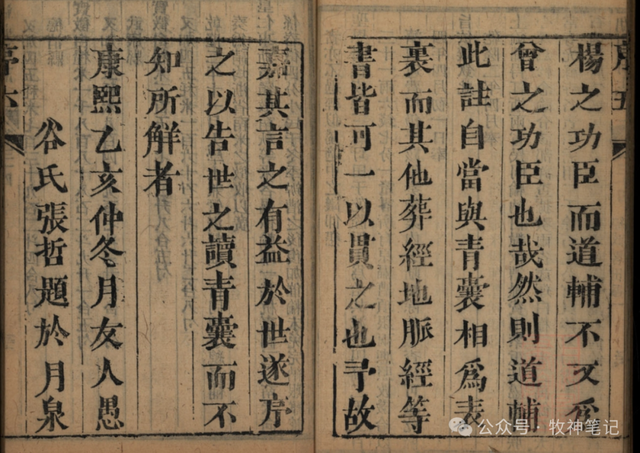 序五
楊之功臣而道輔不又爲
曾之功臣也哉然則道輔
此註自當與青囊相爲表
裏而其他葬經地脈經等
書皆可一以貫之也予故
嘉其言之有益於世遂序
之以告世之讀青囊而不
知所解者
康熙乙亥仲冬月友人愚
谷氏張哲題於月泉
序六
公众号·牧神笔记